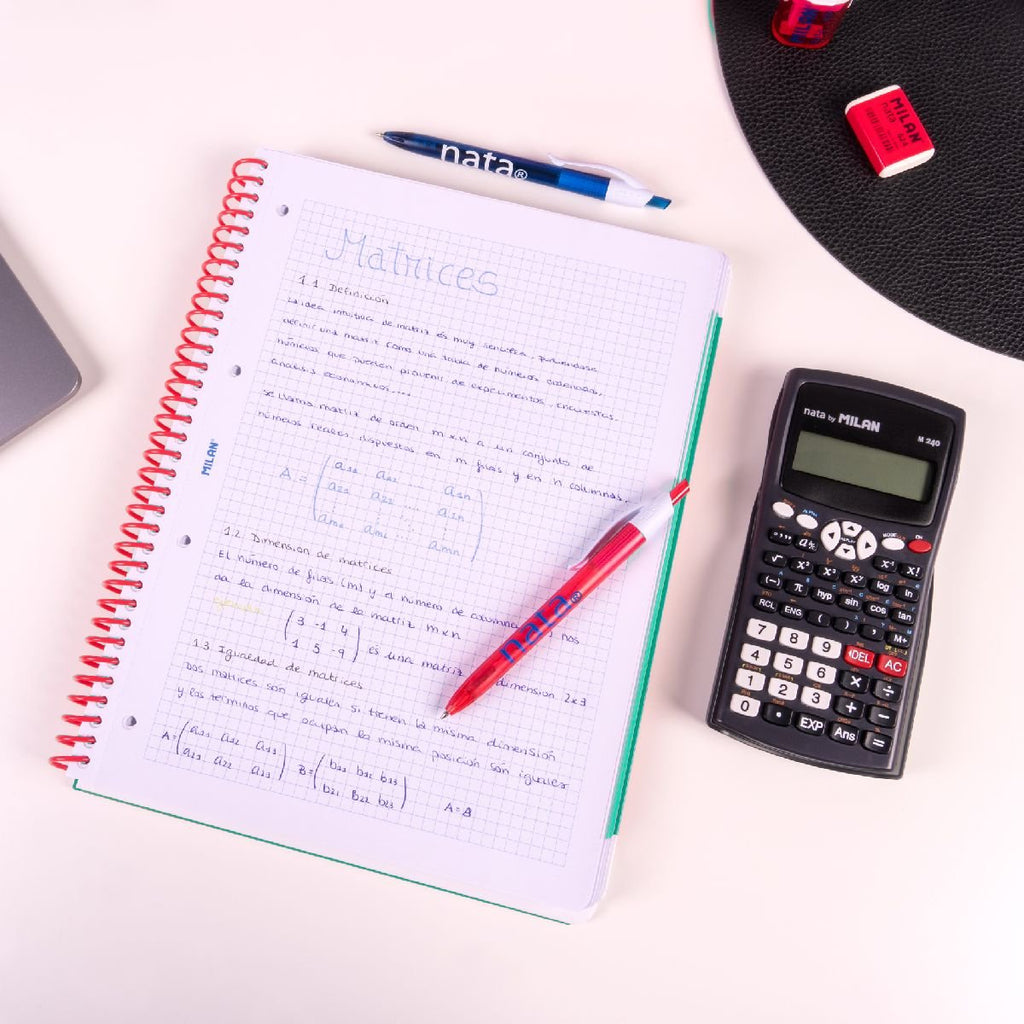 nata®
MILAN
nata 624
Matrices
1.1 Definición
La idea intuitiva de matriz es muy sencilla, pudiendose
definir una matriz como una tabla de números ordenados,
números que pueden provenir de experimentos, encuestas,
analisis economicos....
Se llama matriz de orden m x n a un conjunto de
números reales dispuestos en m filas y en n columnas.
A = ( a11 a12 a1n
a21 a22 .... a2n
am1 am2 amn )
MILAN®
1.2 Dimension de matrices
El número de filas (m) y el número de columnas nos
da la dimensión de la matriz m x n
ejemplo
( 3 -1 4
1 5 -9 ) es una matriz dimension 2x3
1.3 Igualdad de matrices
Dos matrices son iguales si tienen la misma dimensión
y los terminos que ocupan la misma posición son iguales
A=( a11 a12 a13 B=( b11 b12 b13
b21 b22 b23 ) A=B
nata®
nata by MILAN
M 240
MODE
ON
REPLAY
x⁻¹ x!
√ x² x³ log ln
(-) π hyp sin cos tan
RCL ENG ( ) , M+
7 8 9 DEL AC
4 5 6 × ÷
1 2 3 + −
0 • EXP Ans =